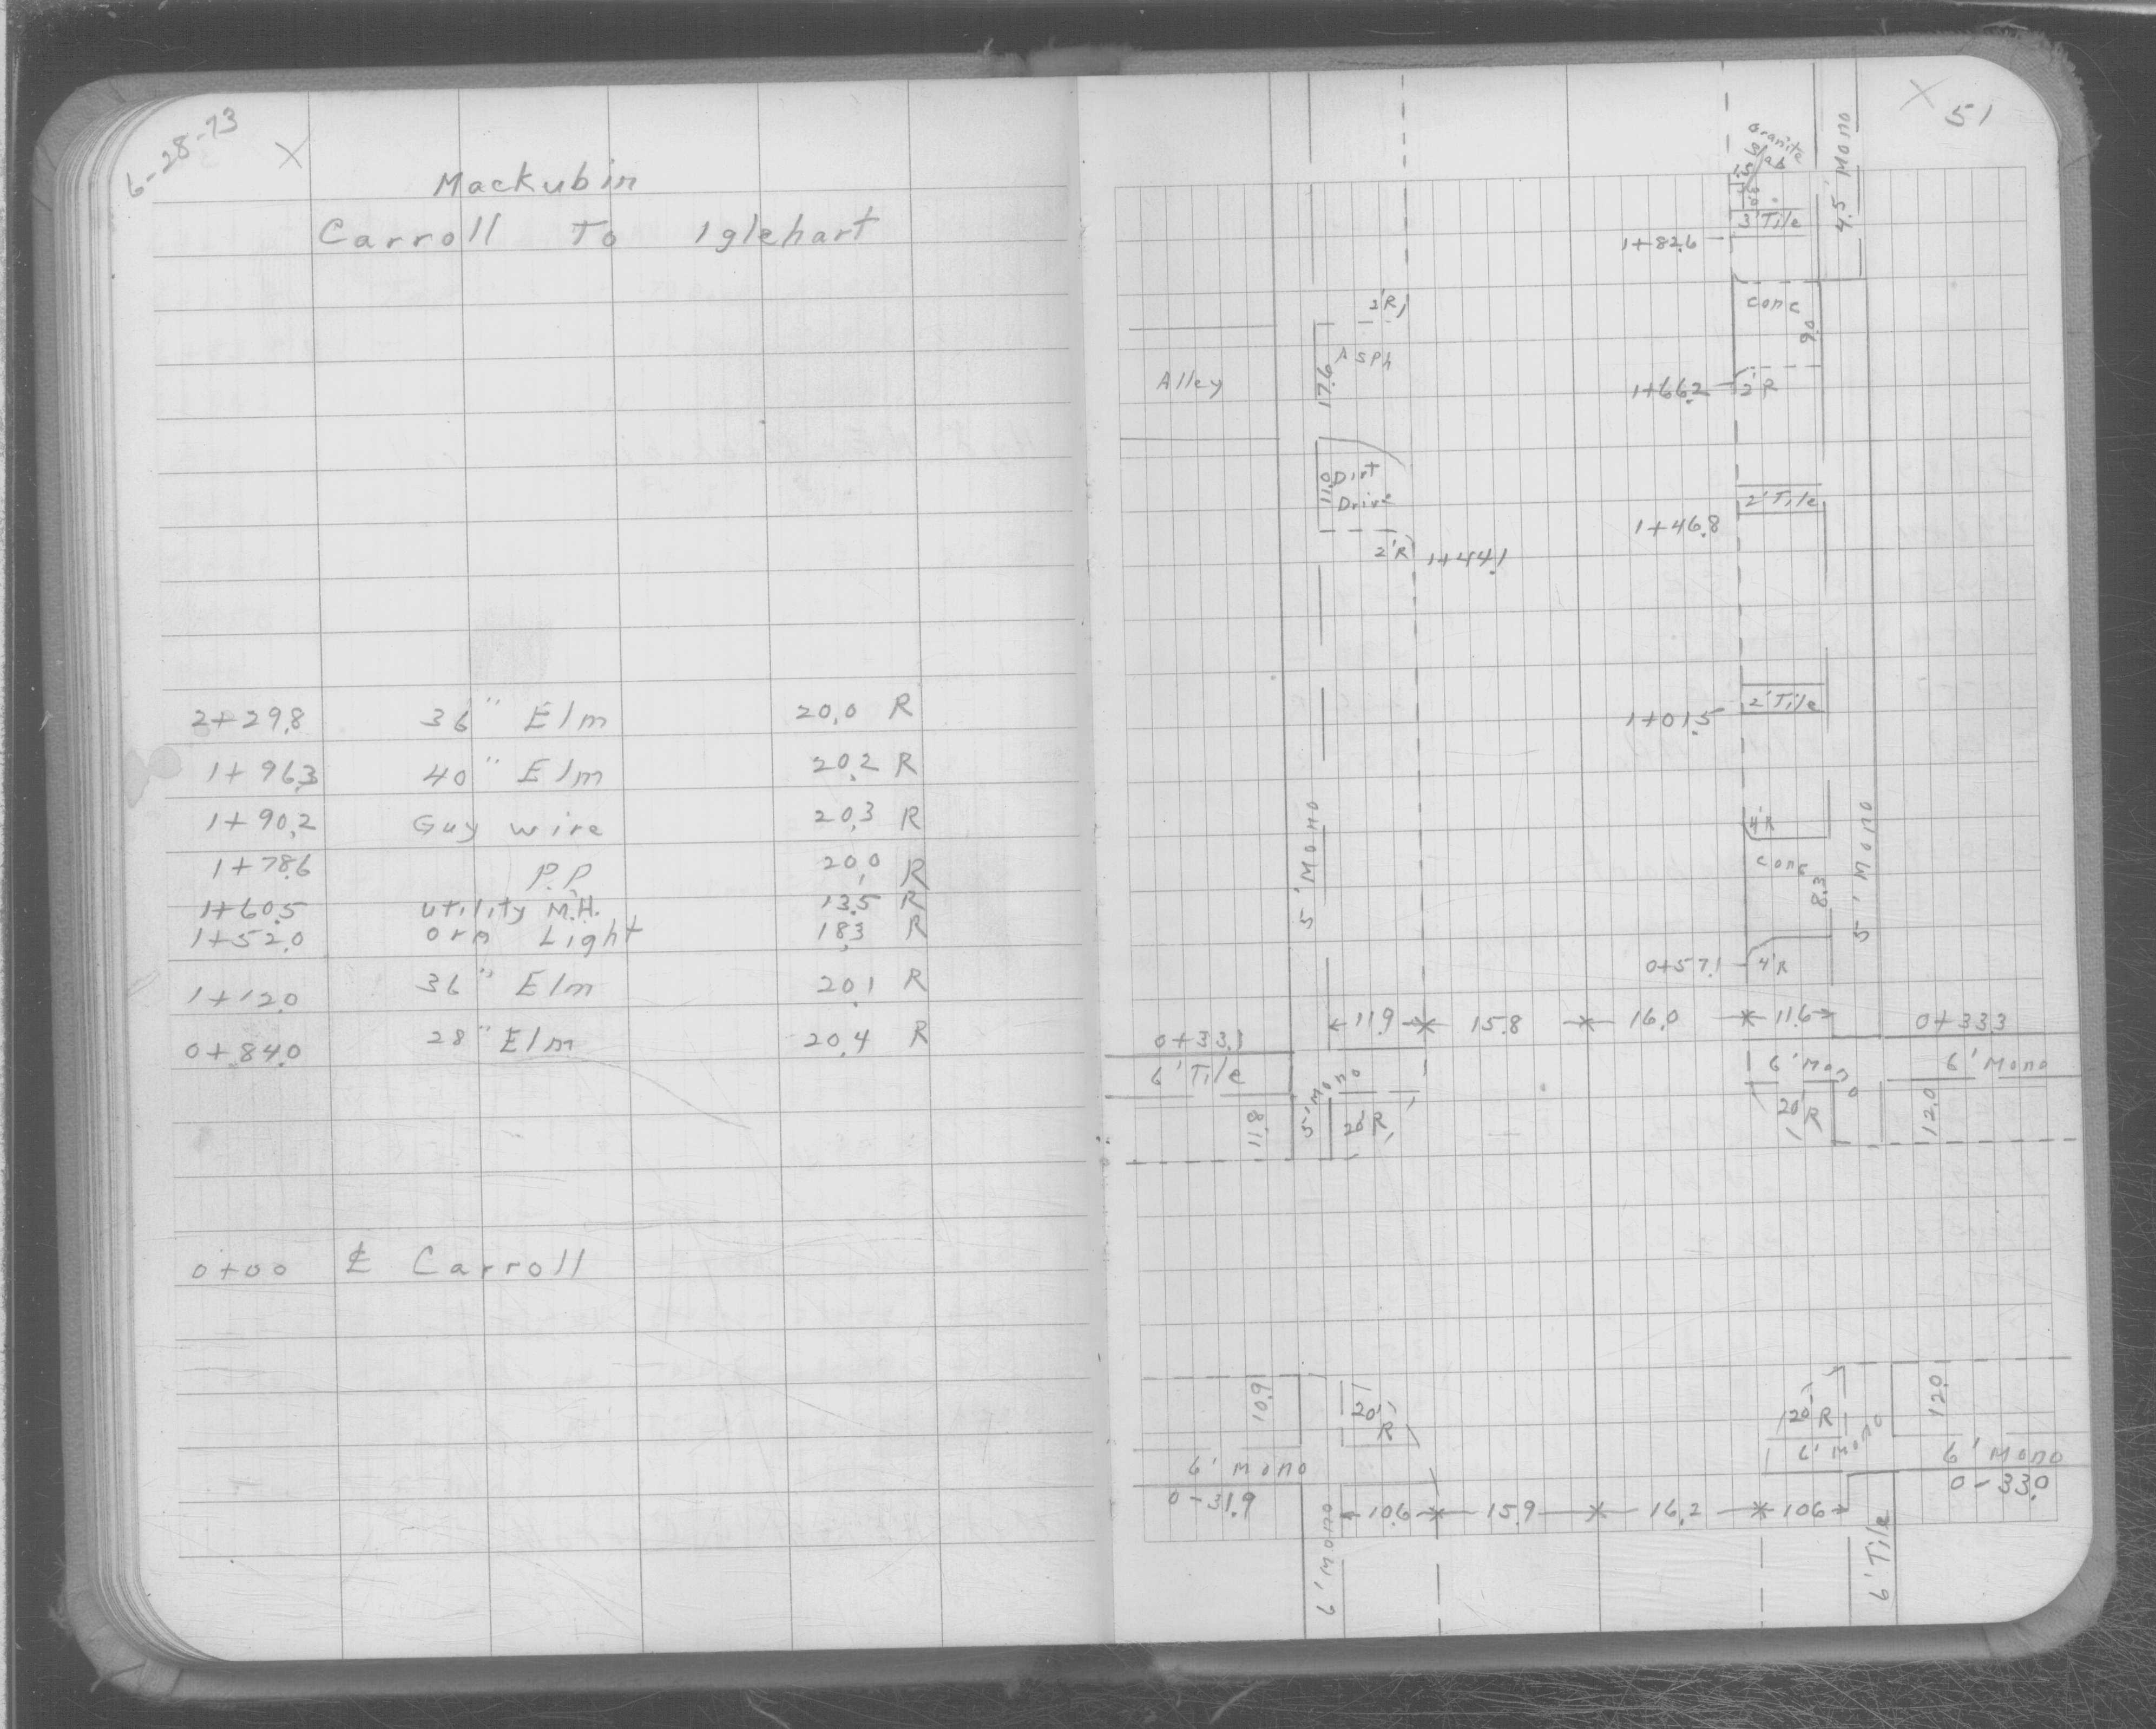 6-28-73
X
Mackubin
Carroll To Iglehart
2+29.8 36" Elm 20.0 R
1+96.3 40" Elm 20.2 R
1+90.2 Guy wire 20.3 R
1+78.6 P.P 20.0 R
1+60.5 utility M.H. 13.5 R
1+52.0 orn Light 18.3 R
1+12.0 36" Elm 20.1 R
0+84.0 28" Elm 20.4 R
0+00 ℄ Carroll
X 51
Granite
4.5' Mono
3' Tile
1+82.6
2'R
conc
9.0
Asph
17.6
Alley
1+66.2
2'R
11.0 Dirt
Drive
2' Tile
1+46.8
2'R
1+44.1
2' Tile
1+01.5
5' Mono
4'R
conc
8.3
5' Mono
0+57.1
4'R
11.9 15.8 16.0 11.6
0+33.1
0+33.3
6' Tile
5' Mono
6' Mono
6' Mono
11.8
20'R
20'R
12.0
10.9
20'R
20'R
12.0
6' Mono
6' Mono
6' Mono
0-31.9
0-33.0
6' Mono
10.6 15.9 16.2 10.6
6' Tile